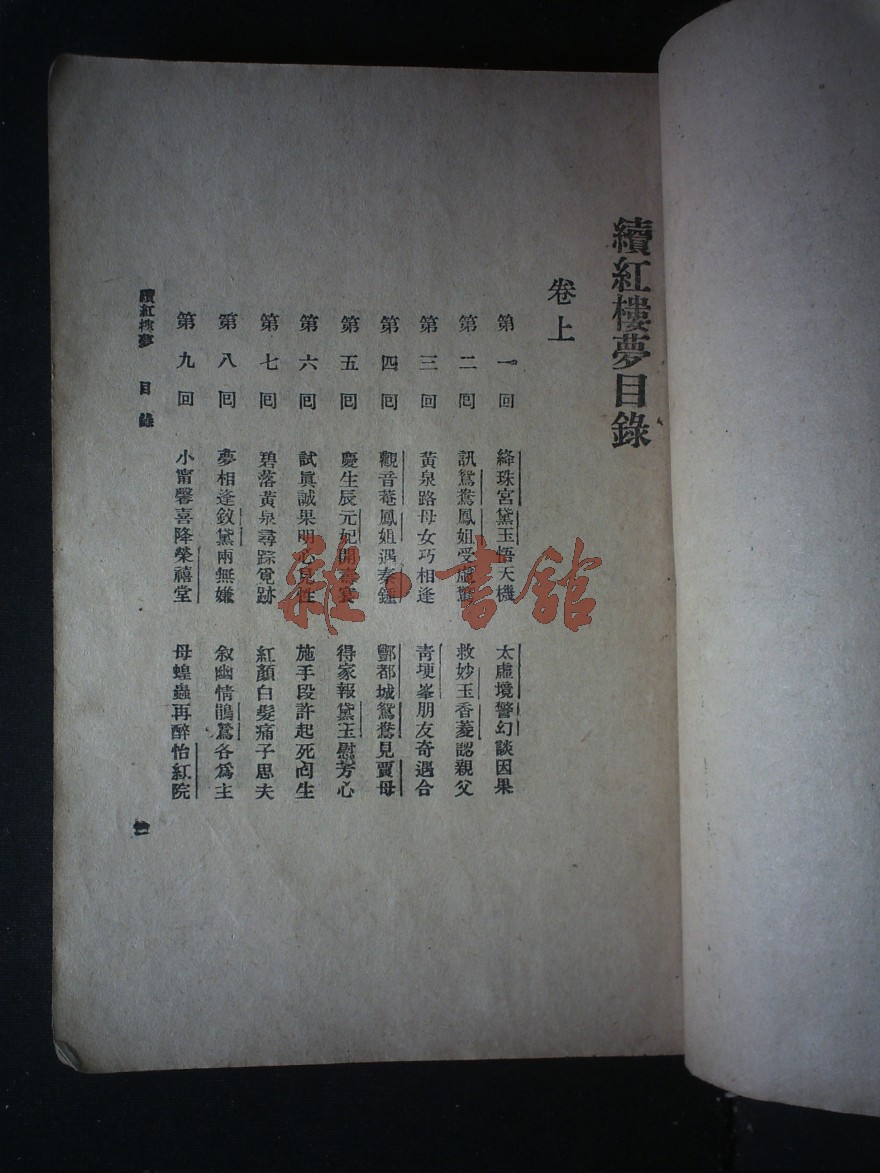 續紅樓夢目錄
卷上
第一回 絳珠宮黛玉悟天機 太虛境警幻談因果
第二回 訊鴛鴦鳳姐受虛驚 救妙玉香菱認親父
第三回 黃泉路母女巧相逢 青埂峯朋友奇遇合
第四回 觀音菴鳳姐遇秦鍾 酆都城鴛鴦見賈母
第五回 慶生辰元妃開壽宴 得家報黛玉慰芳心
第六回 試眞誠果明心見性 施手段許起死回生
第七回 碧落黃泉尋踪覓跡 紅顏白髮痛子思夫
第八回 夢相逢釵黛兩無嫌 敘幽情鵑鴛各爲主
第九回 小甯馨喜降榮禧堂 母蝗蟲再醉怡紅院
續紅樓夢 目錄
雜·書館